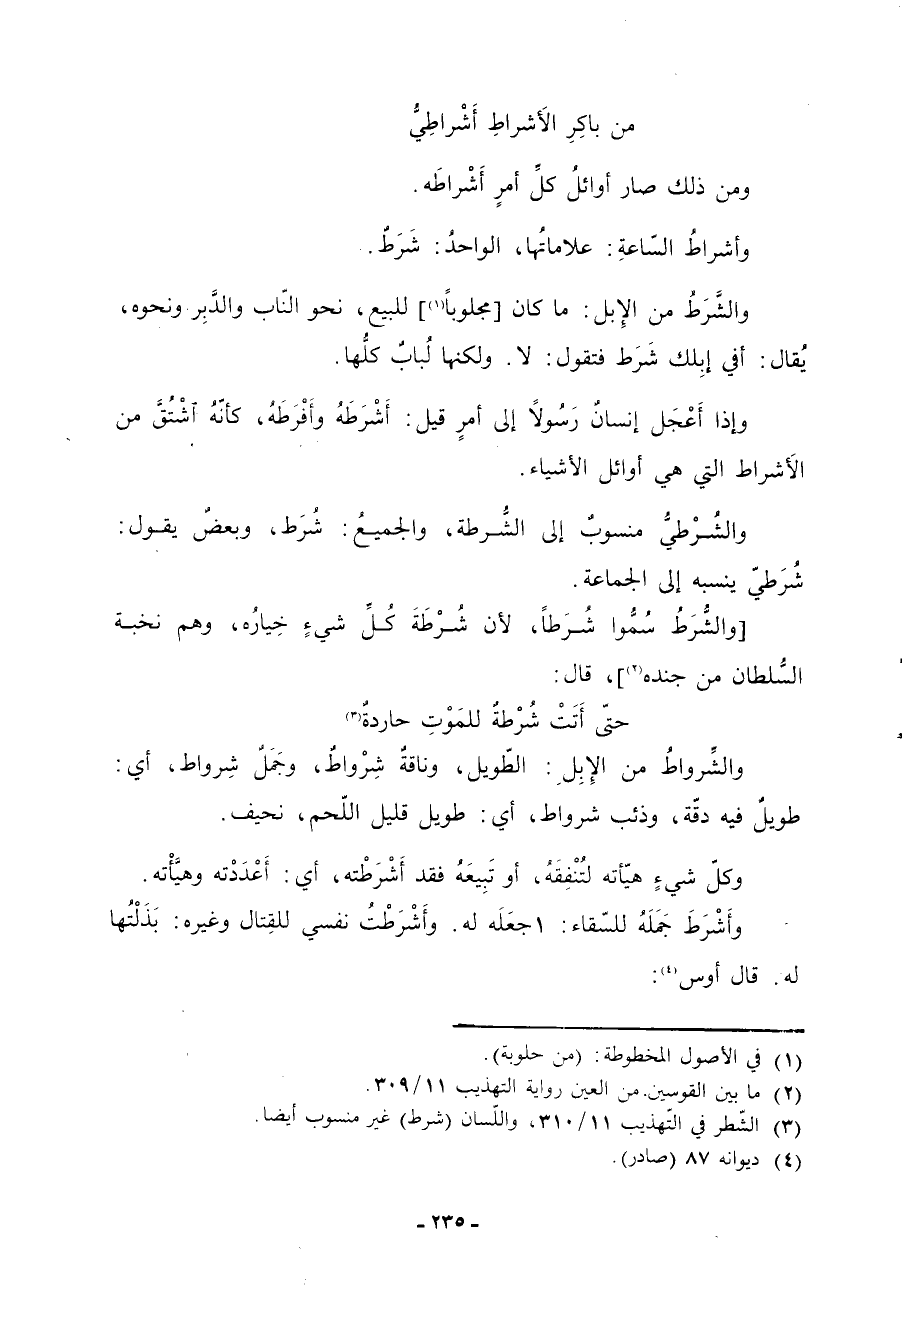 من باكِرِ الأَشراطِ أَشْراطِيُّ
ومن ذلك صار أوائلُ كلِّ أمرٍ أَشْراطَه.
وأشراطُ السّاعةِ: علاماتُها، الواحدُ: شَرَطٌ.
والشَّرَطُ من الإِبل: ما كان [مجلوباً(١)] للبيع، نحو النّاب والدَّبِر ونحوه،
يُقال: أفي إبِلك شَرَط فتقول: لا. ولكنها لُبابٌ كلُّها.
وإذا أَعْجَل إنسانٌ رَسُولاً إلى أمرٍ قيل: أَشْرَطَهُ وأَفْرَطَهُ، كأنّهُ ٱشْتُقَّ من
الأَشراط التي هي أوائل الأشياء.
والشُّرْطيُّ منسوبٌ إلى الشُّرطة، والجميعُ: شُرَط، وبعضٌ يقول:
شُرَطيّ ينسبه إلى الجماعة.
[والشُّرَطُ سُمُّوا شُرَطاً، لأن شُرْطَةَ كُلِّ شيءٍ خِيارُه، وهم نخبة
السُّلطان من جنده(٢)]، قال:
حتّى أَتَتْ شُرْطةٌ للمَوْتِ حاردةٌ(٣)
والشِّرواطُ من الإِبِلِ: الطّويل، وناقةٌ شِرْواطٌ، وجَمَلٌ شِرواط، أي:
طويلٌ فيه دقّة، وذئب شرواط، أي: طويل قليل اللّحم، نحيف.
وكلّ شيءٍ هيّأته لتُنْفِقَهُ، أو تَبِيعَهُ فقد أَشْرَطْته، أي: أَعْدَدْته وهيَّأْته.
وأَشْرَطَ جَمَلَهُ للسّقاء: ١جعَلَه له. وأَشْرَطْتُ نفسي للقِتال وغيره: بَذَلْتُها
له. قال أوس(٤):
(١) في الأصول المخطوطة: (من حلوبة).
(٢) ما بين القوسين من العين رواية التهذيب ٣٠٩/١١.
(٣) الشّطر في التّهذيب ٣١٠/١١، واللّسان (شرط) غير منسوب أيضا.
(٤) ديوانه ٨٧ (صادر).
- ٢٣٥ -